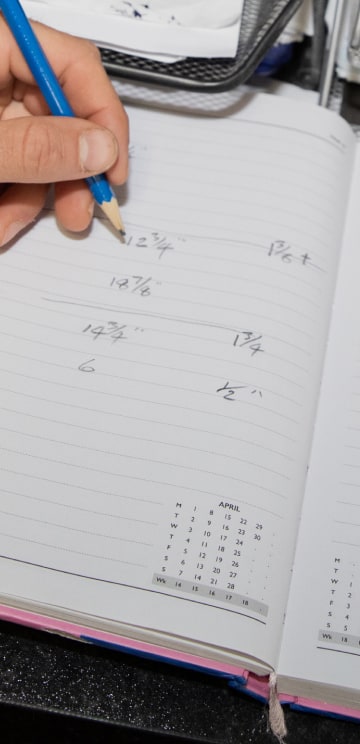 12 3/4 "
18 7/8 "
14 3/4 " 1 3/4
6
1/2 "
APRIL
M 1 8 15 22 29
T 2 9 16 23 30
W 3 10 17 24
T 4 11 18 25
F 5 12 19 26
S 6 13 20 27
S 7 14 21 28
Wk 14 15 16 17 18
M
T 1
W 2
T 3
F
S 4
S 5
Wk 18